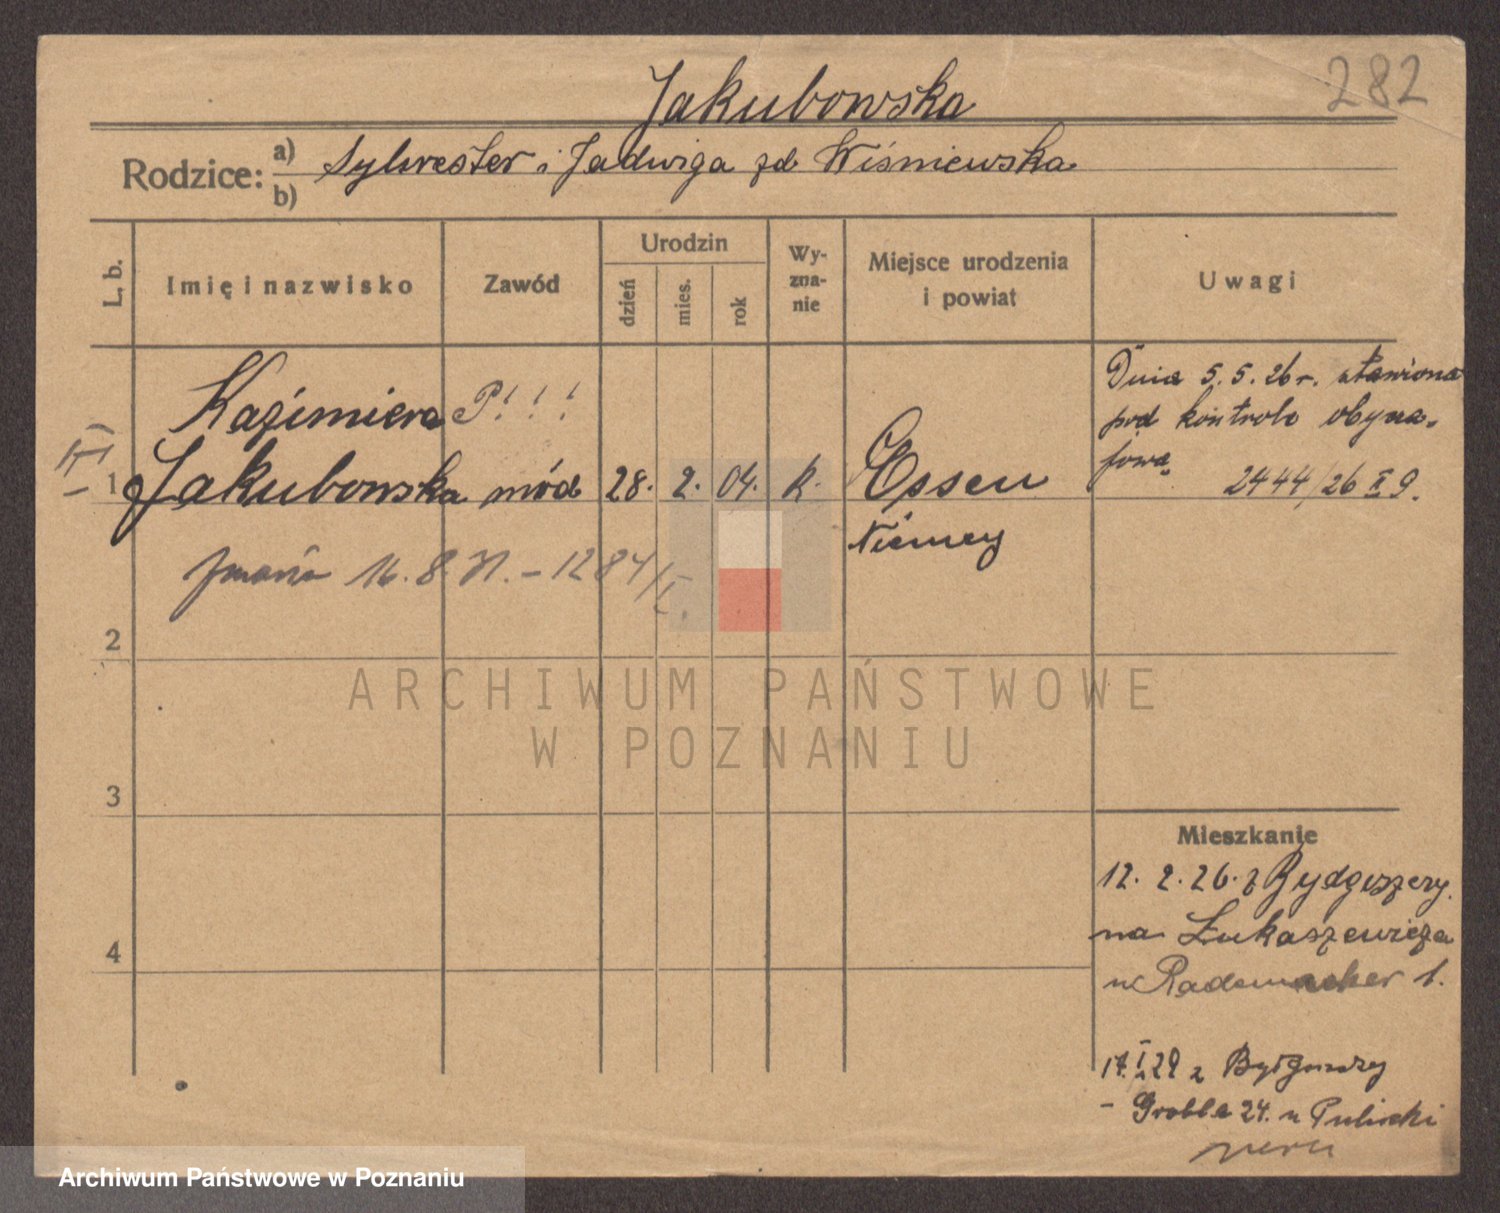 282
Jakubowska
Rodzice: a) b) Sylwester i Jadwiga zd Wiśniewska
L. b.
Imię i nazwisko
Zawód
Urodzin
dzień
mies.
rok
Wy-
zna-
nie
Miejsce urodzenia
i powiat
Uwagi
Kazimiera P!!!
1 Jakubowska mód 28. 2. 04. k. Essen
Niemcy
Dnia 5. 5. 26 r. stawiona
pod kontrolo obycza-
jową
2444/26 II 9.
16. 8. 31. - 1284/I.
2
3
4
Mieszkanie
12. 2. 26. z Bydgoszczy
na Łukaszewicza
u Rademacher 1.
17. I 29 z Bydgoszczy
- Grobla 24. u
ARCHIWUM PAŃSTWOWE
W POZNANIU
Archiwum Państwowe w Poznaniu